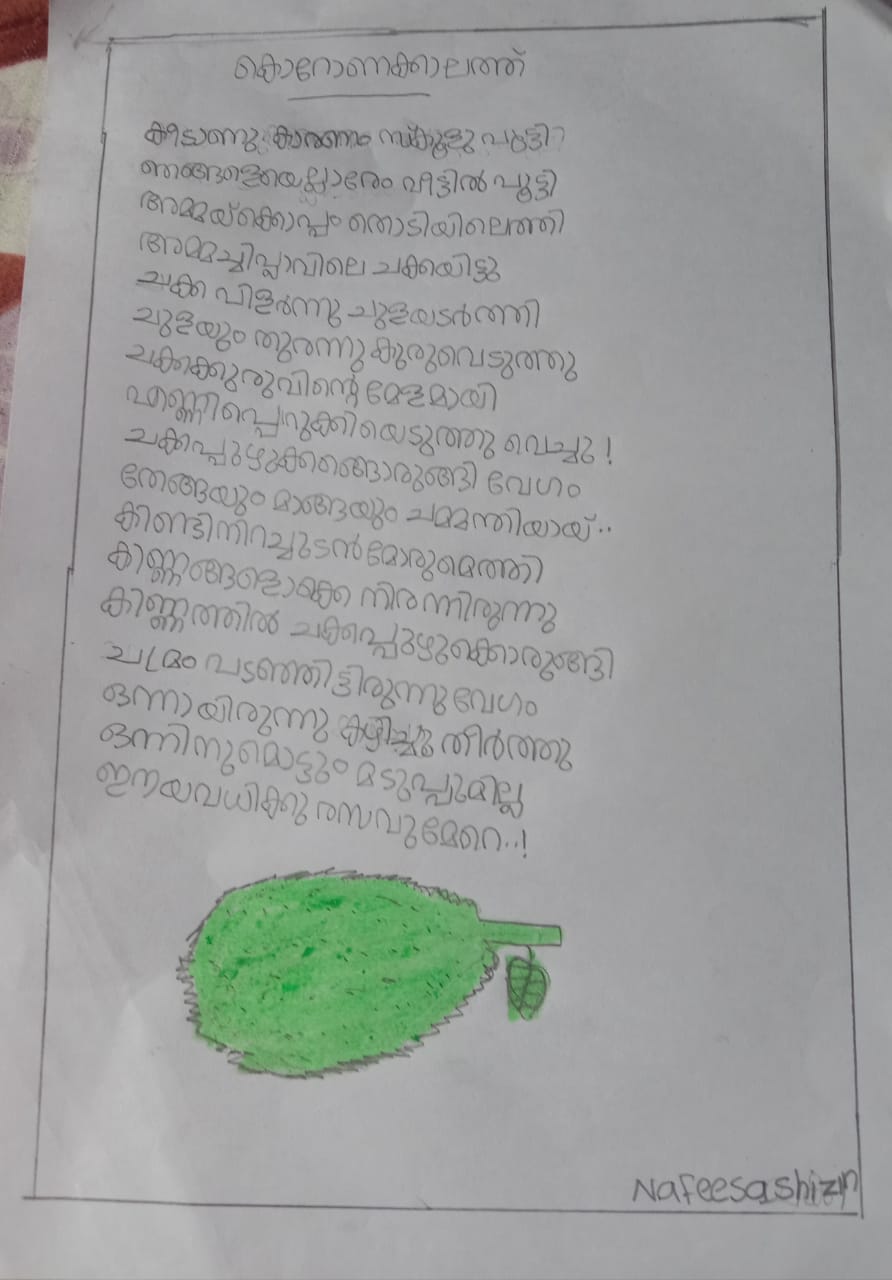 കൊറോണക്കാലത്ത്
കീടാണു കാരണം സ്കൂളു പൂട്ടി
ഞങ്ങളെയെല്ലാരേം വീട്ടിൽ പൂട്ടി
അമ്മയ്ക്കൊപ്പം തൊടിയിലെത്തി
അമ്മച്ചിപ്ലാവിലെ ചക്കയിട്ടു
ചക്ക പിളർന്നു ചുളയടർത്തി
ചുളയും തുരന്നു കുരുവെടുത്തു
ചക്കക്കുരുവിന്റെ മേളമായി
എണ്ണിപ്പെറുക്കിയെടുത്തു വെച്ചു!
ചക്കപ്പുഴുക്കങ്ങൊരുങ്ങി വേഗം
തേങ്ങയും മാങ്ങയും ചമ്മന്തിയായ്..
കിണ്ടിനിറച്ചുടൻ മോരുമെത്തി
കിണ്ണങ്ങളൊക്കെ നിരന്നിരുന്നു
കിണ്ണത്തിൽ ചക്കപ്പുഴുക്കൊരുങ്ങി
ചമ്രം പടഞ്ഞിട്ടിരുന്നു വേഗം
ഒന്നായിരുന്നു കഴിച്ചു തീർത്തു
ഒന്നിനുമൊട്ടും മടുപ്പുമില്ല
ഈയവധിക്കു രസവുമേറെ..!
Nafeesashizin